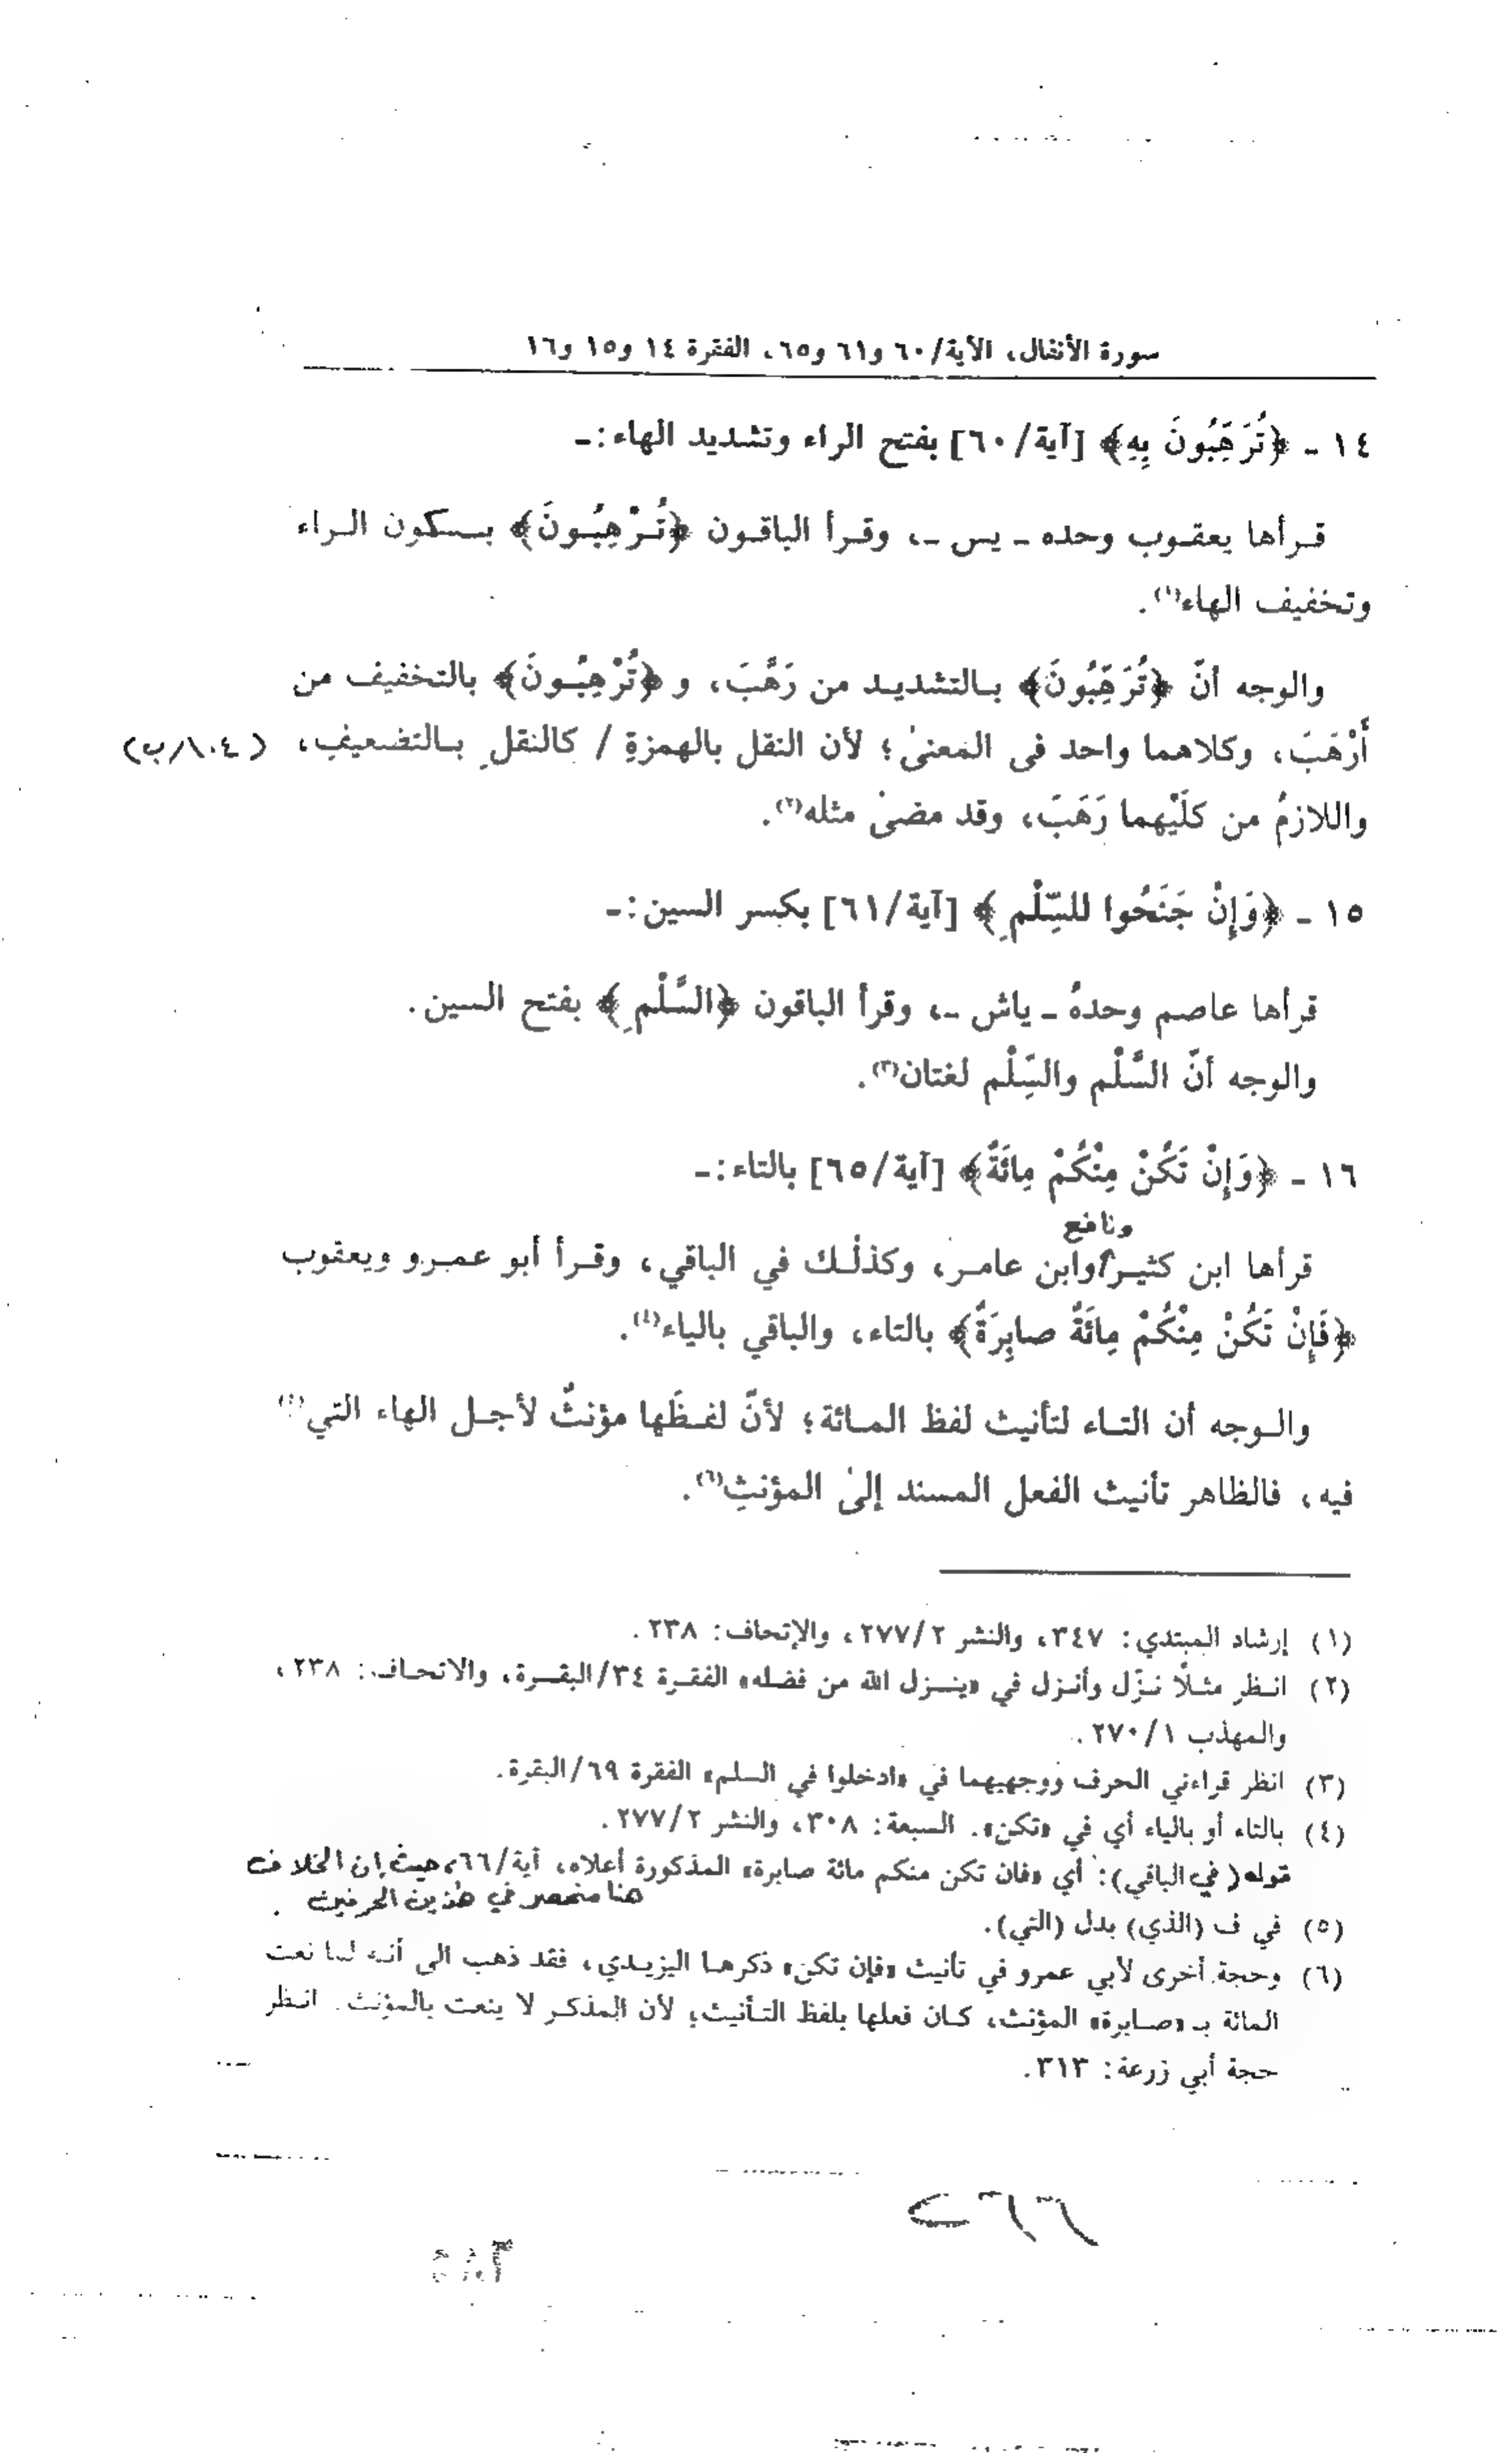 سورة الأنفال، الآية/٦٠ و٦١ و٦٥، الفقرة ١٤ و١٥ و١٦
١٤ ـ ﴿تُرَهِّبُونَ بِهِ﴾ [آية/٦٠] بفتح الراء وتشديد الهاء:ـ
قرأها يعقوب وحده ـ يس ـ، وقرأ الباقون ﴿تُرْهِبُونَ﴾ بسكون الراء
وتخفيف الهاء(١).
والوجه أنّ ﴿تُرَهِّبُونَ﴾ بالتشديد من رَهَّبَ، و﴿تُرْهِبُونَ﴾ بالتخفيف من
أَرْهَبَ، وكلاهما واحد في المعنىٰ؛ لأن النقل بالهمزةِ / كالنقلِ بالتضعيفِ، (١٠٤/ب)
واللازمُ من كلَيْهما رَهَبَ، وقد مضىٰ مثله(٢).
١٥ ـ ﴿وَإِنْ جَنَحُوا للسِّلْمِ﴾ [آية/٦١] بكسر السين:ـ
قرأها عاصم وحدهُ ـ ياش ـ، وقرأ الباقون ﴿السَّلْمِ﴾ بفتح السين.
والوجه أنّ السَّلْم والسِّلْم لغتان(٣).
١٦ ـ ﴿وَإِنْ تَكُنْ مِنْكُمْ مِائَةٌ﴾ [آية/٦٥] بالتاء:ـ
ونافع
قرأها ابن كثير وابن عامر، وكذلك في الباقي، وقرأ أبو عمرو ويعقوب
﴿فَإِنْ تَكُنْ مِنْكُمْ مِائَةٌ صابِرَةٌ﴾ بالتاء، والباقي بالياء(٤).
والوجه أن التاء لتأنيث لفظ المائة؛ لأنّ لفظَها مؤنثٌ لأجل الهاء التي(٥)
فيه، فالظاهر تأنيث الفعل المسند إلىٰ المؤنثِ(٦).
(١) إرشاد المبتدي: ٣٤٧، والنشر ٢/٢٧٧، والإتحاف: ٢٣٨.
(٢) انظر مثلًا نزّل وأنزل في «ينزل الله من فضله» الفقرة ٣٤/البقرة، والاتحاف: ٢٣٨،
والمهذب ١/٢٧٠.
(٣) انظر قراءتي الحرف ووجهيهما في «ادخلوا في السلم» الفقرة ٦٩/البقرة.
(٤) بالتاء أو بالياء أي في «تكن». السبعة: ٣٠٨، والنشر ٢/٢٧٧.
قوله (في الباقي): أي «فان تكن منكم مائة صابرة» المذكورة أعلاه، آية/٦٦، حيث إن الخلاف
هنا منحصر في هٰذين الحرفين .
(٥) في ف (الذي) بدل (التي).
(٦) وحجة أخرى لأبي عمرو في تأنيث «فإن تكن» ذكرها اليزيدي، فقد ذهب الى أنه لما نعت
المائة بـ «صابرة» المؤنث، كان فعلها بلفظ التأنيث؛ لأن المذكر لا ينعت بالمؤنث. انظر
حجة أبي زرعة: ٣١٣.